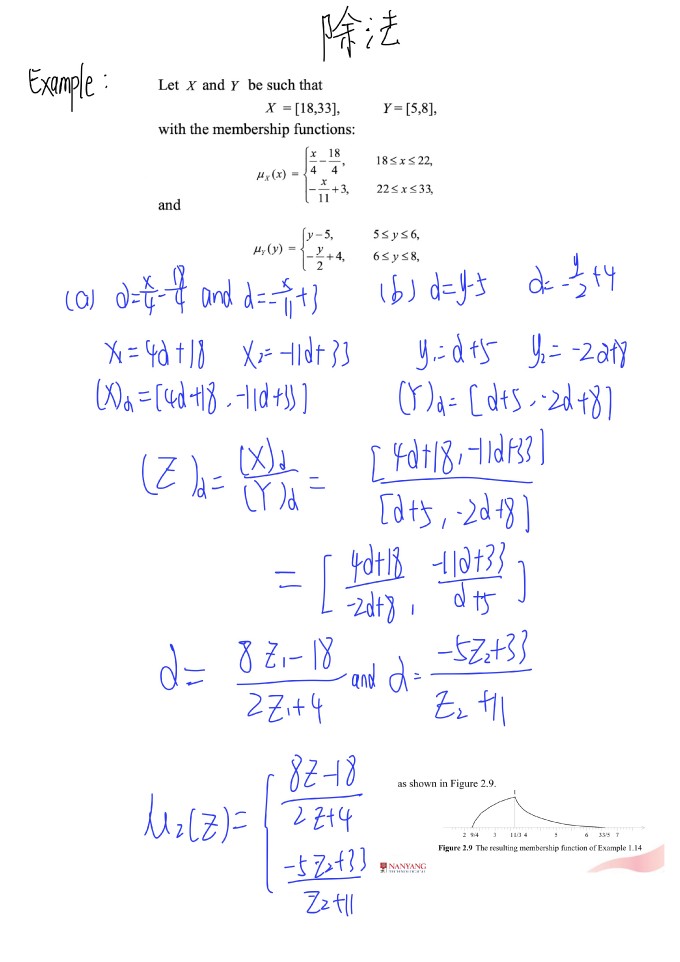 除法
Example:
Let X and Y be such that
X = [18,33], Y = [5,8],
with the membership functions:
μ_X(x) = { x/4 − 18/4, 18 ≤ x ≤ 22,
−x/11 + 3, 22 ≤ x ≤ 33,
and
μ_Y(y) = { y − 5, 5 ≤ y ≤ 6,
−y/2 + 4, 6 ≤ y ≤ 8,
(a) d = x/4 − 18/4 and d = −x/11 + 3 (b) d = y−5 d = −y/2 + 4
x₁ = 4d+18 x₂ = −11d+33 y₁ = d+5 y₂ = −2d+8
(X)d = [4d+18, −11d+33] (Y)d = [d+5, −2d+8]
(Z)d = (X)d/(Y)d = [4d+18, −11d+33]/[d+5, −2d+8]
= [(4d+18)/(−2d+8), (−11d+33)/(d+5)]
d = (8Z₁−18)/(2Z₁+4) and d = (−5Z₂+33)/(Z₂+11)
as shown in Figure 2.9.
μ₂(Z) = { (8Z−18)/(2Z+4)
(−5Z₂+33)/(Z₂+11)
1
2 9/4 3 11/3 4 5 6 33/5 7
Figure 2.9 The resulting membership function of Example 1.14
NANYANG